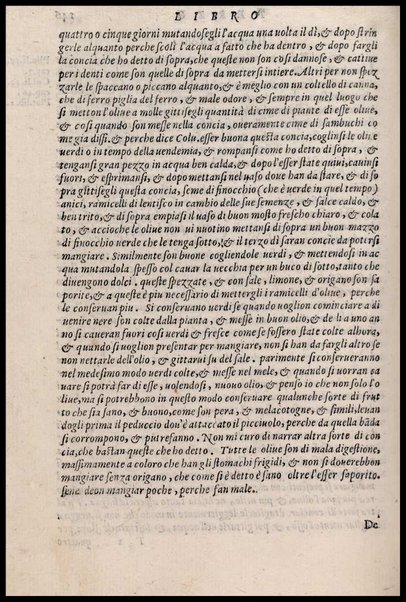 LIBRO
quattro o cinque giorni mutandosegli l'acqua una uolta il dì, & dopo strin
gerle alquanto perche scoli l'acqua a fatto che ha dentro, & dopo fargli
la concia che ho detto di sopra, che queste non son così dannose, & cattiue
per i denti come son quelle di sopra da mettersi intiere. Altri per non spez
zarle le spaccano o piccano alquanto, & è meglio con un coltello di canna,
che di ferro piglia del ferro, & male odore, & sempre in quel luogo che
si metton l'oliue a molle gittisegli quantità di cime di piante di esse oliue,
& così quando son messe nella concia, oueramente cime di sambuchi co
me già dissi. & perche dice Colu. esser buona questa concia, coglinsi le oliue
uerdi o in tempo della uendemia, & rompansi come ho detto di sopra, &
tengansi gran pezzo in acqua ben calda, & dopo l'esser state quiui, cauinsi
fuori, & esprimansi, & dopo mettansi nel uaso doue han da stare, & di so
pra gittisegli questa concia, seme di finocchio (che è uerde in quel tempo)
anici, ramicelli di lentisco in cambio delle sue semenze, & salce caldo, &
ben trito, & di sopra empiasi il uaso di buon mosto frescho chiaro, & cola
to, & accioche le oliue non ui nuotino mettansi di sopra un buon mazzo
di finocchio uerde che le tenga sotto, & il terzo dì saran concie da potirsi
mangiare. Similmente son buone cogliendole uerdi, & mettendosi in ac
qua mutandola spesso col cauar la uecchia per un buco di sotto, tanto che
diuengono dolci. queste spezzate, & con sale, limone, & origano son sa
porite, & a queste è piu necessario di mettergli i ramicelli d'oliue, perche
le conseruan piu. Si conseruano uerdi se quando uoglion cominciare a di
uenire nere son colte dalla pianta, & messe in buon olio, & de lì a uno an
no si caueran fuori così uerdi & fresce come se fossero state colte alhora,
& quando si uoglion presentar per mangiare, non si han da fargli altro se
non nettarle dell'olio, & gittarui su del sale. parimente si conserueranno
nel medesimo modo uerdi colte, & messe nel mele, & quando si uorran ca
uare si potrà far di esse, uolendosi, nuouo olio, & penso io che non solo l'o
liue, ma si potrebbono in questo modo conseruare qualunche sorte di frut
to che sia sano, & buono, come son pera, & melacotogne, & simili, leuan
dogli prima il peduccio dou'è attaccato il picciuolo, perche da quella bãda
si corrompono, & putresanno. Non mi curo di narrar altra sorte di con
cia, che bastan queste che ho detto. Tutte le oliue son di mala digestione,
massimamente a coloro che han gli stomachi frigidi, & non si douerebbon
mangiare senza origano, che come si è detto è sano oltre l'esser saporito.
sene deon mangiar poche, perche fan male.
De